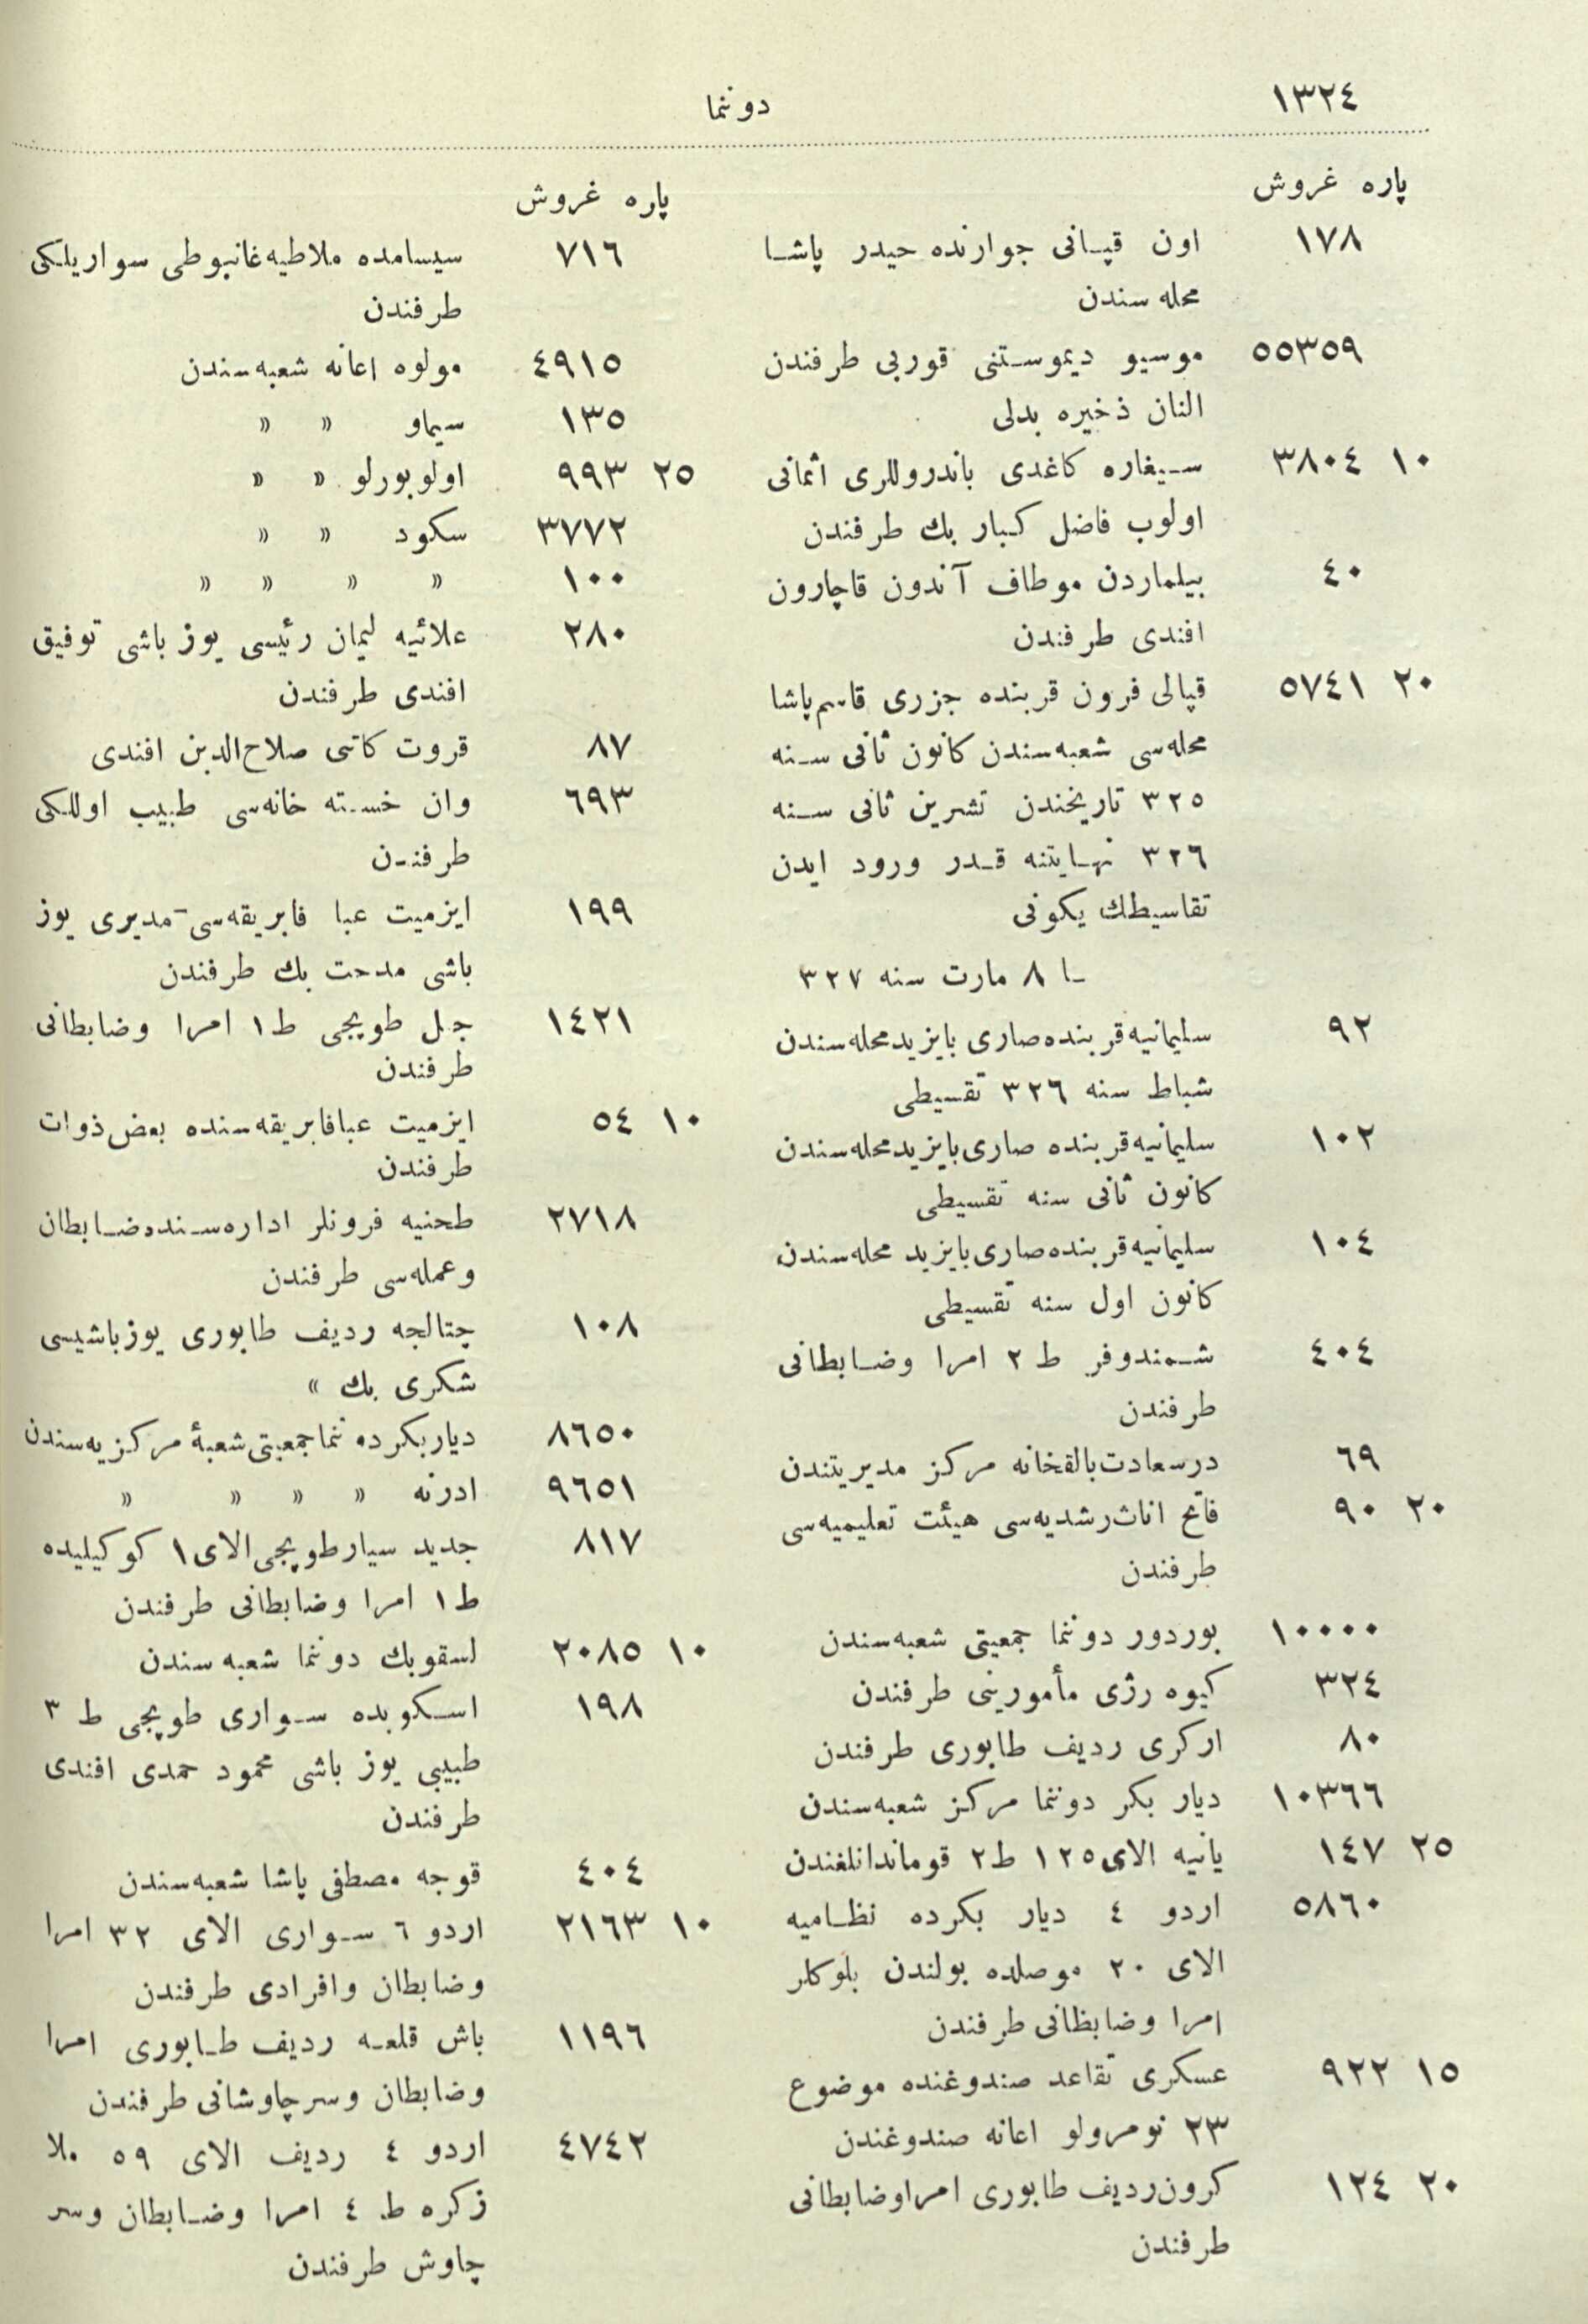 ١٣٢٤
دوننما
پاره غروش
١٧٨ اون قپانی جوارنده حیدر پاشا
محله سندن
٥٥٣٥٩ موسیو دیموستنی قوربی طرفندن
النان ذخیره بدلی
١٠ ٣٨٠٤ سیغاره کاغدی باندروللری اثمانی
اولوب فاضل کبار بك طرفندن
٤٠ بیلماردن موطاف آندون قاچارون
افندی طرفندن
٢٠ ٥٧٤١ قپالی فرون قربنده جزری قاسم پاشا
محله سی شعبه سندن کانون ثانی سنه
٣٢٥ تاریخندن تشرین ثانی سنه
٣٢٦ نهایتنه قدر ورود ایدن
تقاسیطك یکونی
ـا ٨ مارت سنه ٣٢٧
٩٢ سلیمانیه قربنده صاری بایزید محله سندن
شباط سنه ٣٢٦ تقسیطی
١٠٢ سلیمانیه قربنده صاری بایزید محله سندن
کانون ثانی سنه تقسیطی
١٠٤ سلیمانیه قربنده صاری بایزید محله سندن
کانون اول سنه تقسیطی
٤٠٤ شمندوفر ط ٢ امرا وضابطانی
طرفندن
٦٩ درسعادت بالقخانه مرکز مدیریتندن
٢٠ ٩٠ فاتح اناث رشدیه سی هیئت تعلیمیه سی
طرفندن
١٠٠٠٠ بوردور دوننما جمعیتی شعبه سندن
٣٢٤ کیوه رژی مأمورینی طرفندن
٨٠ ارکری ردیف طابوری طرفندن
١٠٣٦٦ دیار بکر دوننما مرکز شعبه سندن
٢٥ ١٤٧ یانیه الای ١٢٥ ط ٢ قوماندانلغندن
٥٨٦٠ اردو ٤ دیار بکرده نظامیه
الای ٢٠ موصلده بولندن بلوکلر
امرا وضابظانی طرفندن
١٥ ٩٢٢ عسکری تقاعد صندوغنده موضوع
٢٣ نومرولو اعانه صندوغندن
٢٠ ١٢٤ کرون ردیف طابوری امرا وضابطانی
طرفندن
پاره غروش
٧١٦ سیسامده ملاطیه غانبوطی سواریلکی
طرفندن
٤٩١٥ مولوه اعانه شعبه سندن
١٣٥ سیماو » »
٢٥ ٩٩٣ اولوبورلو » »
٣٧٧٢ سکود » »
١٠٠ » » » »
٢٨٠ علائیه لیمان رئیسی یوز باشی توفیق
افندی طرفندن
٨٧ قروت کاتبی صلاح الدین افندی
٦٩٣ وان خسته خانه سی طبیب اوللکی
طرفندن
١٩٩ ایزمیت عبا فابریقه سی مدیری یوز
باشی مدحت بك طرفندن
١٤٢١ جبل طوپجی ط ١ امرا وضابطانی
طرفندن
١٠ ٥٤ ایزمیت عبا فابریقه سنده بعض ذوات
طرفندن
٢٧١٨ طحنیه فرونلر اداره سنده ضابطان
وعمله سی طرفندن
١٠٨ چتالجه ردیف طابوری یوزباشیسی
شکری بك »
٨٦٥٠ دیاربکر دوننما جمعیتی شعبهٔ مرکزیه سندن
٩٦٥١ ادرنه » » » »
٨١٧ جدید سیار طوپجی الای ١ کوکیلیده
ط ١ امرا وضابطانی طرفندن
١٠ ٢٠٨٥ لسقوبك دوننما شعبه سندن
١٩٨ اسکوبده سواری طوپجی ط ٣
طبیبی یوز باشی محمود حمدی افندی
طرفندن
٤٠٤ قوجه مصطفی پاشا شعبه سندن
١٠ ٢١٦٣ اردو ٦ سواری الای ٣٢ امرا
وضابطان وافرادی طرفندن
١١٩٦ باش قلعه ردیف طابوری امرا
وضابطان وسرچاوشانی طرفندن
٤٧٤٢ اردو ٤ ردیف الای ٥٩ ملا
زکره ط ٤ امرا وضابطان وسر
چاوش طرفندن